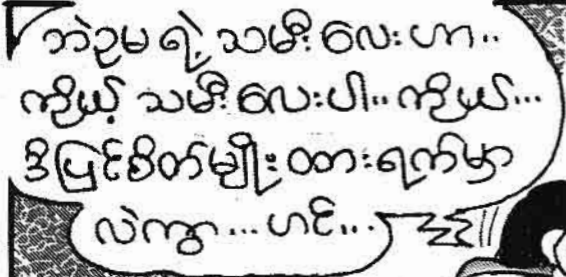 ဘဲဥမရဲ့ သမီးလေးဟာ..
ကိုယ့် သမီးလေးပါ..ကိုယ်...
ဒီပြင်စိတ်မျိုးထားရက်မှာ
လဲကွာ...ဟင်...